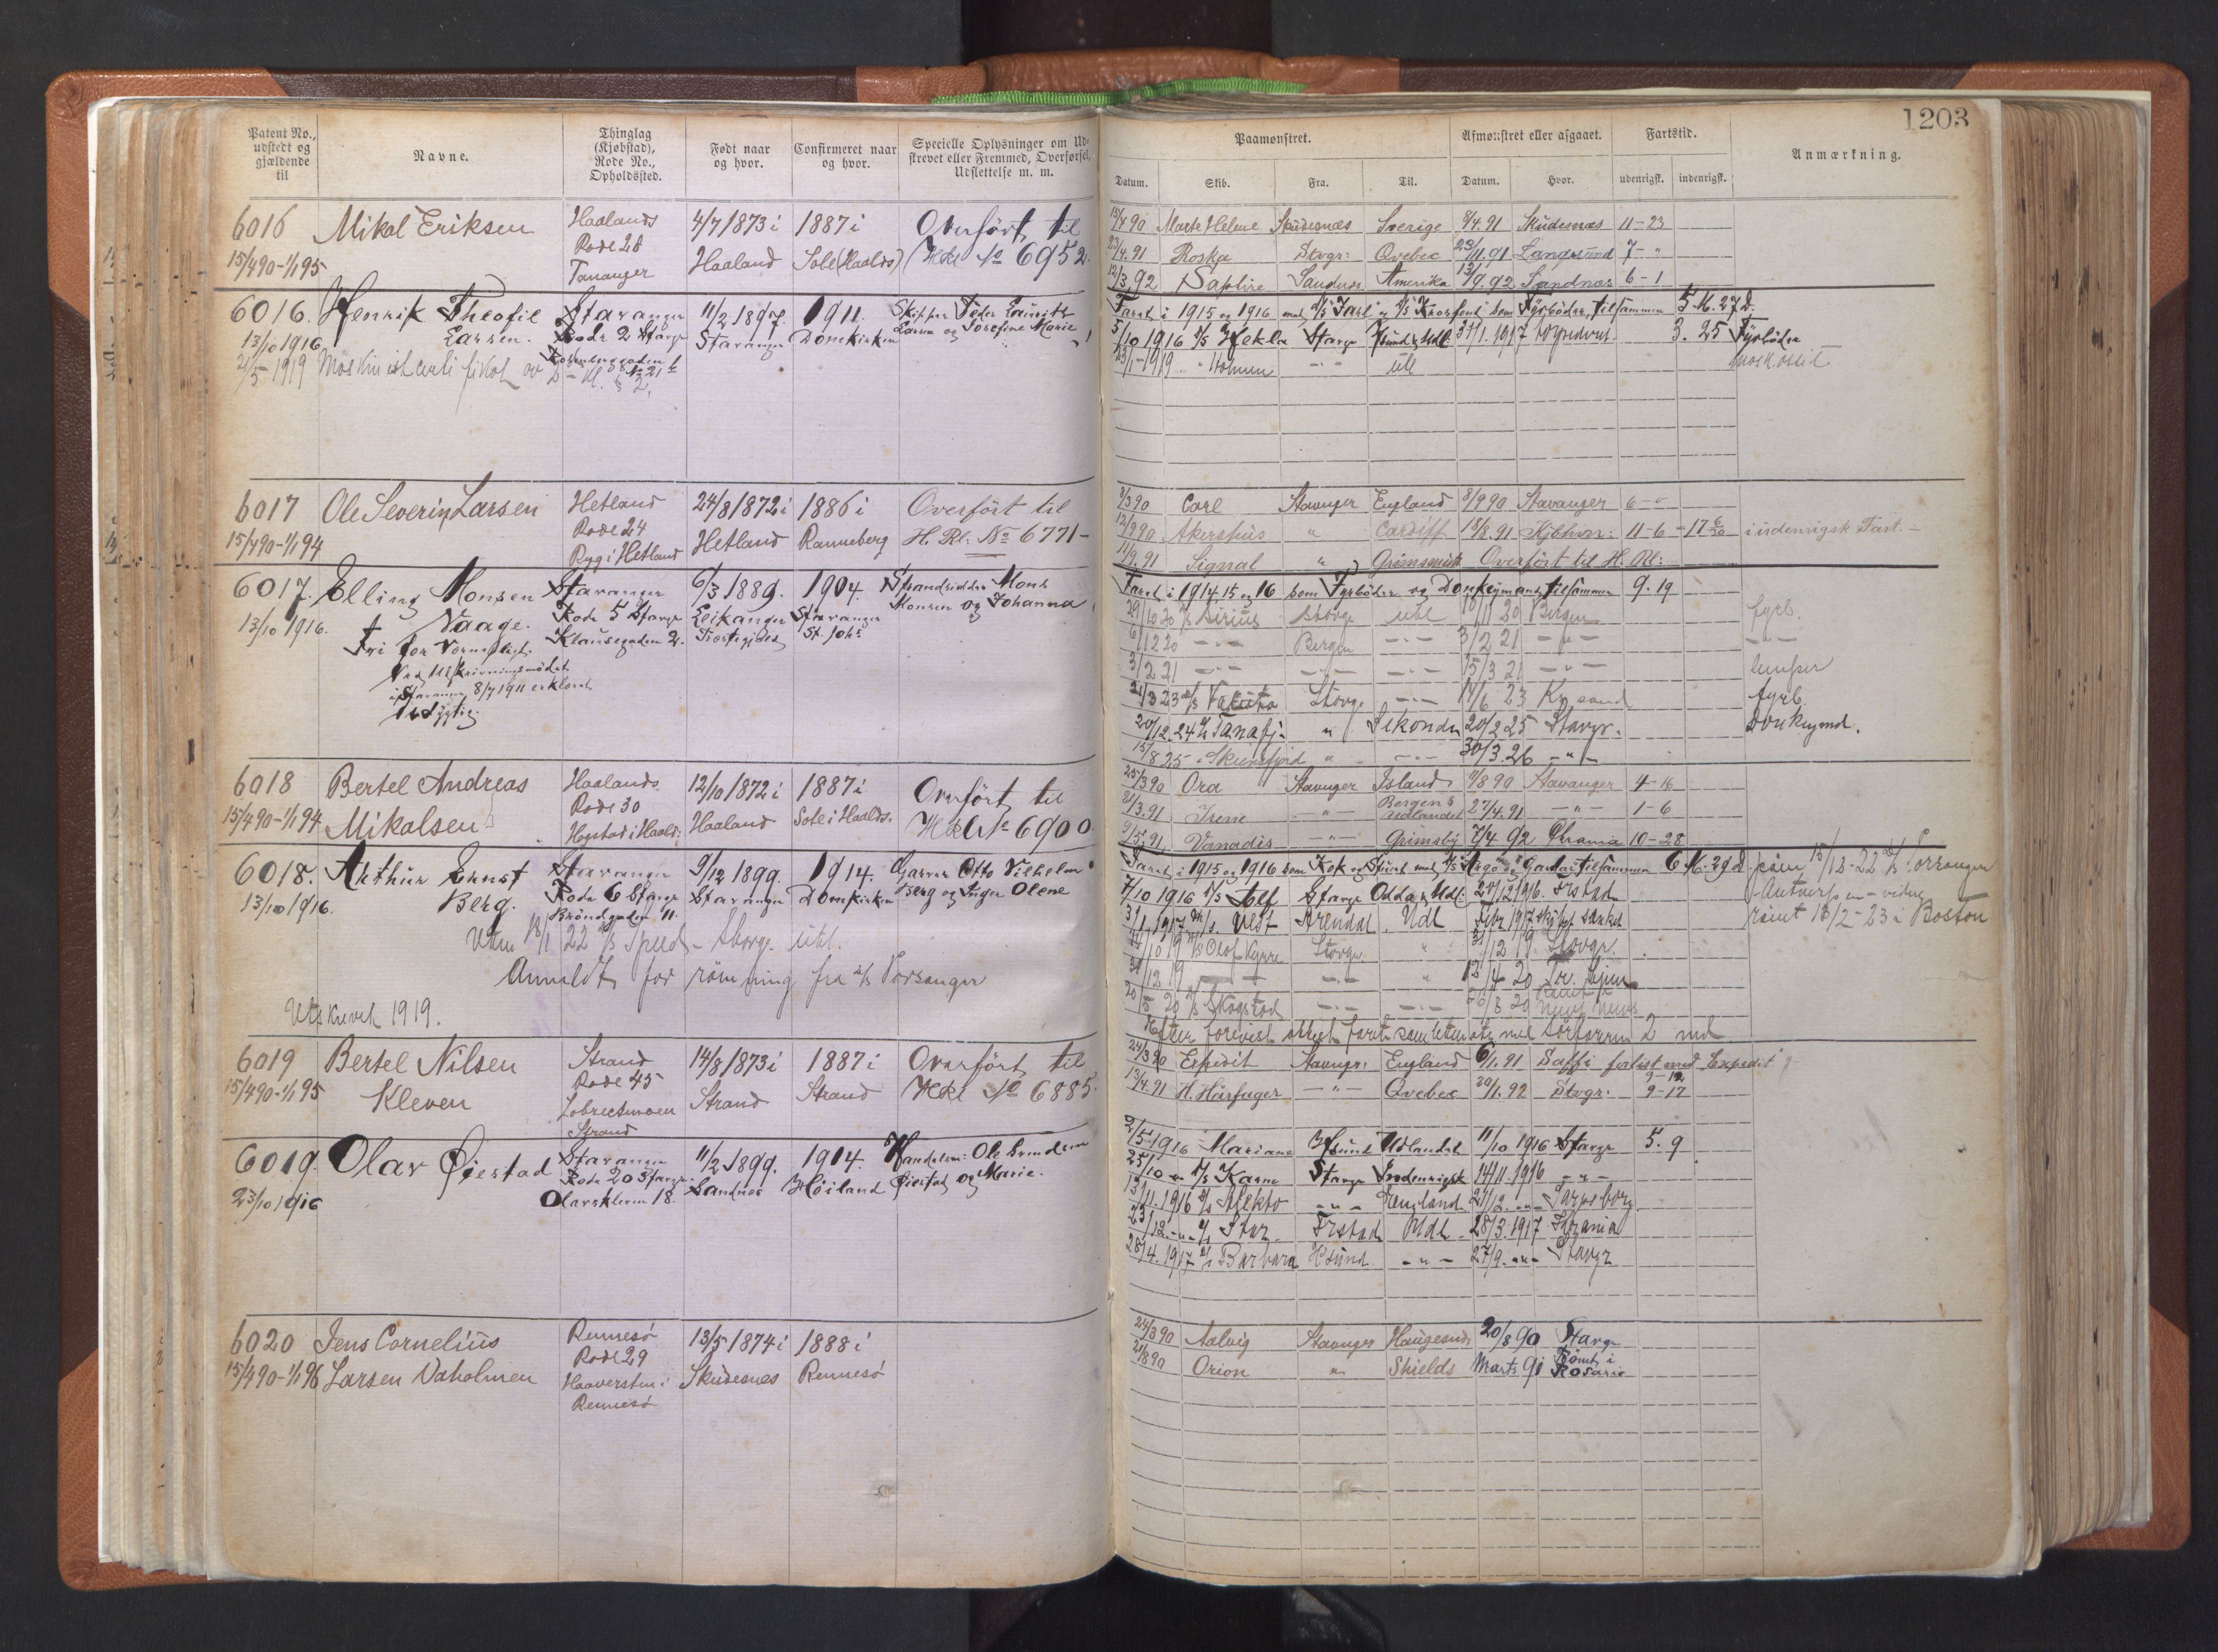 1203
Patent No., udstedt og gjældende til
Navne.
Thinglag (Kjøbstad), Rode No., Opholdssted.
Født naar og hvor.
Confirmeret naar og hvor.
Specielle Oplysninger om Udskrevet eller Fremmed, Overførsel, Udslettelse m. m.
Paamønstret.
Afmønstret eller afgaaet.
Fartstid.
Anmærkning.
Datum. Skib. Fra. Til. Datum. Hvor. udenrigsk. indenrigsk.
6016 Mikal Eriksen Haalands 4/7 1873 i 1887 i Overført til
15/4 90-1/1 95 Rode 28 Haaland Sole (Haalds) Hkl No 6952.
Tananger
15/4 90 Marte Helene Skudesnæs Sverige 8/4.91 Skudesnæs 11-23
23/4.91 Roska Stvgr: Qvebec 23/11.91 Langesund 7-"
12/3.92 Saphire Sandnæs Amerika 13/9.92 Sandnæs 6-1
6016. Henrik Theofil Stavanger 11/2 1897. 1911. Skipper Peder Lauritz
13/10 1916. Larsen. Rode 2 Stavgr Stavanger Domkirken Larsen og Josefine Marie
21/5-1919 Maskinistcertifikat av 2 kl.
Faret i 1915 og 1916 med D/S Jarl og D/S Korsfond som Fyrbøder, tilsammen 5 M. 27 D.
5/10 1916 D/S Hekla Stavgr Hsund & Udl. 31/1.1917 3. 25 Fyrbøder
23/1-1919 " -"- utl
6017 Ole Severin Larsen Hetland 24/8 1872 i 1886 i Overført til
15/4 90-1/1 94 Rode 24 Hetland Ranneberg H. Rl: No 6771-
Ryg i Hetland
3/3 90 Carl Stavanger England 8/9 90 Stavanger 6-"
12/9 90 Akershus " Cardiff 18/8.91 Kjbhvn: 11-6 -17 6/30 i udenrigsk Fart.-
11/9.91 Signal " Grimsmith Overført til H. Rl:
6017. Elling Monsen Stavanger 6/3 1889. 1904. Strandsidder Mons
13/10 1916. Vaage. Rode 5 Stavgr Eikanger Stavanger Monsen og Johanna
Fri for Værnepligt. Klausegaden 2. St. Johs
Ved Udskrivningsmødet
i Stavanger 8/7 1911 erklæret
Udygtig
Faret i 1914, 15 og 16 som Fyrbøder og Donkeymand, tilsammen 9. 19
29/10 20 D/S Sirius Stavgr utl 18/11 20 Bergen fyrb.
6/12 20 -"- Bergen -"- 3/2 21 -"- -"-
3/2 21 -"- -"- -"- 15/3 21 -"- lemper
21/3 23 Stavgr -"- 14/6 23 Kr.sand fyrb.
20/12.24 D/S Tanafj. " Sekondi 20/2 25 Stavgr. Donkeymd.
15/8 25 " -"- 30/3.26 -"-
6018 Bertel Andreas Haalands 12/10 1872 i 1887 i Overført til
15/4 90-1/1 94 Mikalsen Rode 30 Haaland Sole i Haalds. Hkl No 6900.
Hogstad i Haald:
25/3 90 Ora Stavanger Island 9/8 90 Stavanger 4-16
21/3.91 Irene -"- Bergen & Udlandet 27/4.91 -"- 1-6
9/5.91 Vanadis -"- Grimsby 7/4 92 Chrania 10-28
6018. Arthur Ernst Stavanger 9/12 1899. 1914. Garver Otto Vilhelm
13/10 1916. Berg. Rode 6 Stavgr Stavanger Domkirken Berg og Inger Olene
Brøndgaden 11.
Utm 18/1 22 D/S Spind - Stavgr. utl.
Anmeldt for rømning fra D/S Porsanger
Utskrevet 1919.
Faret i 1915 og 1916 som Kok og Stuert med D/S Argo og Gandar, tilsammen 6 M. 29 D
7/10 1916 D/S Alf Stavgr Odda & Udl. 24/12 1916. Frstad
3/1 1917 D/S Vest Arendal Udl. Febr 1917 skibet sænket
24/10 19 D/S Olaf Kyrre Stavgr. " 31/12 19 Stavgr.
31/12 19 -"- -"- " 13/4 20
20/5 20 D/S Skogstad -"- -"- 26/8 20 rømt
røm 15/12-22 D/S Porsanger
Antwerpen - videre
rømt 18/2-23 i Boston
6019 Bertel Nilsen Strand 14/8 1873 i 1887 i Overført til
15/4 90-1/1 95 Kleven Rode 45 Strand Strand Hkl No 6885.
Strand
24/3 90 Expedit Stavngr: England 6/1.91 Saffi forlist med "Expedit" 9-12
13/4.91 H. Hårfager -"- Qvebec 20/1.92 Stvgr: 9-17
6019. Olav Øiestad Stavanger 11/2 1899. 1914. Handelsm: Ole Gundersen
23/10 1916 Rode 20 Stavgr. Sandnes Høiland Øiestad og Marie.
Olavskleven 18.
2/5 1916 Mariane Hsund Udlandet 11/10 1916 Stavgr 5. 9
25/10 -"- D/S Karmø Stavgr Indenrigsk 14/11.1916 -"-
13/11.1916 D/S Alekto -"- England 21/12.-"- Sarpsborg
23/12.-"- D/S Star Frstad Udl. 28/3.1917 Khrania
28/4.1917 D/S Barbara Hsund -"- 27/9.-"- Stavgr
6020 Jens Cornelius Rennesø 13/5 1874 i 1888 i
15/4 90-1/1 96 Larsen Vaholmen Rode 29 Skudesnæs Rennesø
Haaversten i
Rennesø
24/3 90 Aalvig Stavanger Haugesund 20/8 90 Stavgr
21/8 90 Orion " Shields Marts 91 Rømt i Rosario